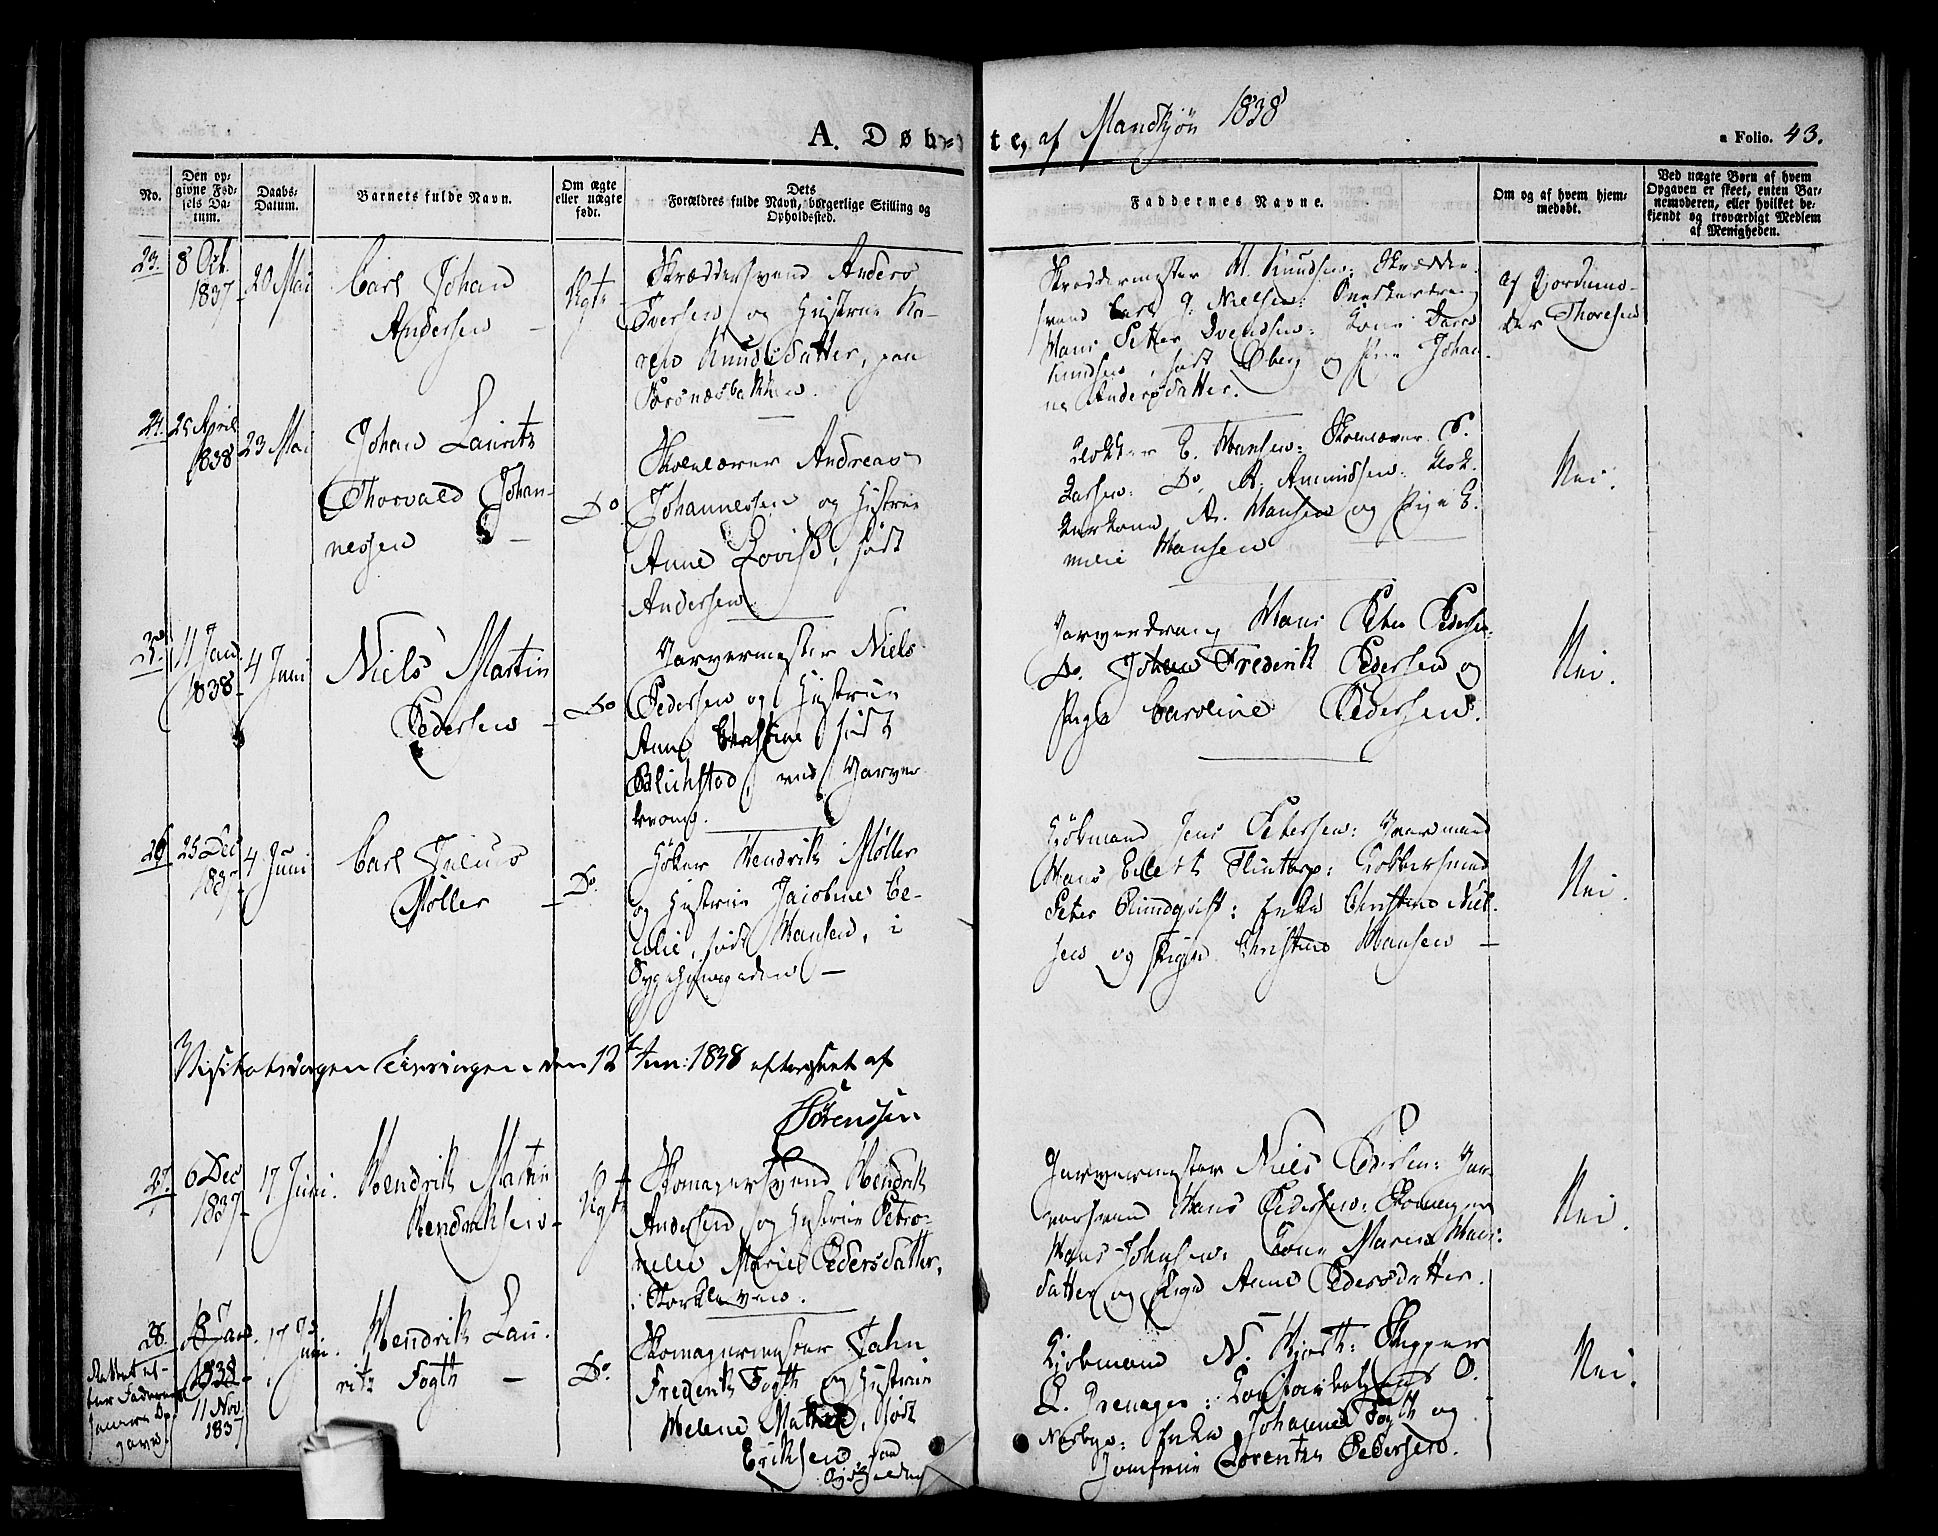 A. Døb-
te, af Mandkjøn 1838
a Folio. 43.
No.
Den op-
givne Fød-
sels Da-
tum.
Daabs-
Datum.
Barnets fulde Navn.
Om ægte
eller uægte
født.
Dets
Forældres fulde Navn, borgerlige Stilling og
Opholdssted.
Faddernes Navne.
Om og af hvem hjem-
medøbt.
Ved uægte Børn af hvem
Opgaven er skeet, enten Bar-
nemoderen, eller hvilket be-
kjendt og troværdigt Medlem
af Menigheden.
23.
8 Oct.
1837
20 Mai
Carl Johan
Andersen
Ægte
Skræddersvend Anders
Iversen og Hustrue Ka-
ren Knudsdatter, paa
Skræddermester M. Knudsen: Skrædder-
svend Carl J. Nielsen: Snedkerdreng
Hans Petter Svendsen: Kone
Knudsen, født Øberg og Pige Johan-
ne Andersdatter.
af Jordemo-
der Thoresen
24.
25 April
1838
23 Mai
Johan Lauritz
Thorvald Johan-
nessen
Do
Skolelærer Andreas
Johannessen og Hustrue
Anne Lovise, født
Andersen.
Klokker C. Hansen: Skolelærer S.
Larsen: Do. A. Amundsen: Klok-
kerkone A. Hansen og Pige E-
milie Hansen
Nei.
25.
11 Jan
1838
4 Juni
Niels Martin
Pedersen
Do
Garvermester Niels
Pedersen og Hustrue
Anne født
Blichstad, ved Garver-
Garverdreng Hans Peter Pedersen:
Do. Johan Frederik Pedersen og
Pige Caroline Pedersen.
Nei.
26
25 Dec
1837
4 Juni
Carl Julius
Møller
Do.
Høker Hendrik Møller
og Hustrue Jacobine Ce-
cilie, født Hansen, i
Sygehuusgaden
Kjøbmand Jens Petersen:
Hans Flintorp: Kobbersmed
Peter Rundqvist: Enke Christine Niel-
sen og Pigen Christine Hansen
Nei.
Visitatsdagen Tirsdagen den 12te Juni 1838 efterseet af
Sørenssen
27.
6 Dec
1837
17 Juni.
Hendrik Martin
Hendriksen
Ægte
Skomagersvend Hendrik
Andersen og Hustrue Petro-
nelle Marie Pedersdatter,
i Storkleven.
Garvermester Niels Pedersen: Gar-
versvend Hans Pedersen: Skomager
Hans Johnsen: Kone Maren Hans-
datter og Pige Anne Pedersdatter.
Nei.
28.
8 Jan.
1838
11 Nov.
1837
Rettet ef-
ter Faderens
17 Juni.
Hendrik Lau-
ritz Fogth
Do.
Skomagermester John
Frederik Fogth og Hustrue
Helene Mathea, født
Eriksen, paa
Kjøbmand N. Hjorth: Skipper
O.
Enke Johanne Fogth og
Jomfrue Lorentze Pedersen.
Nei.